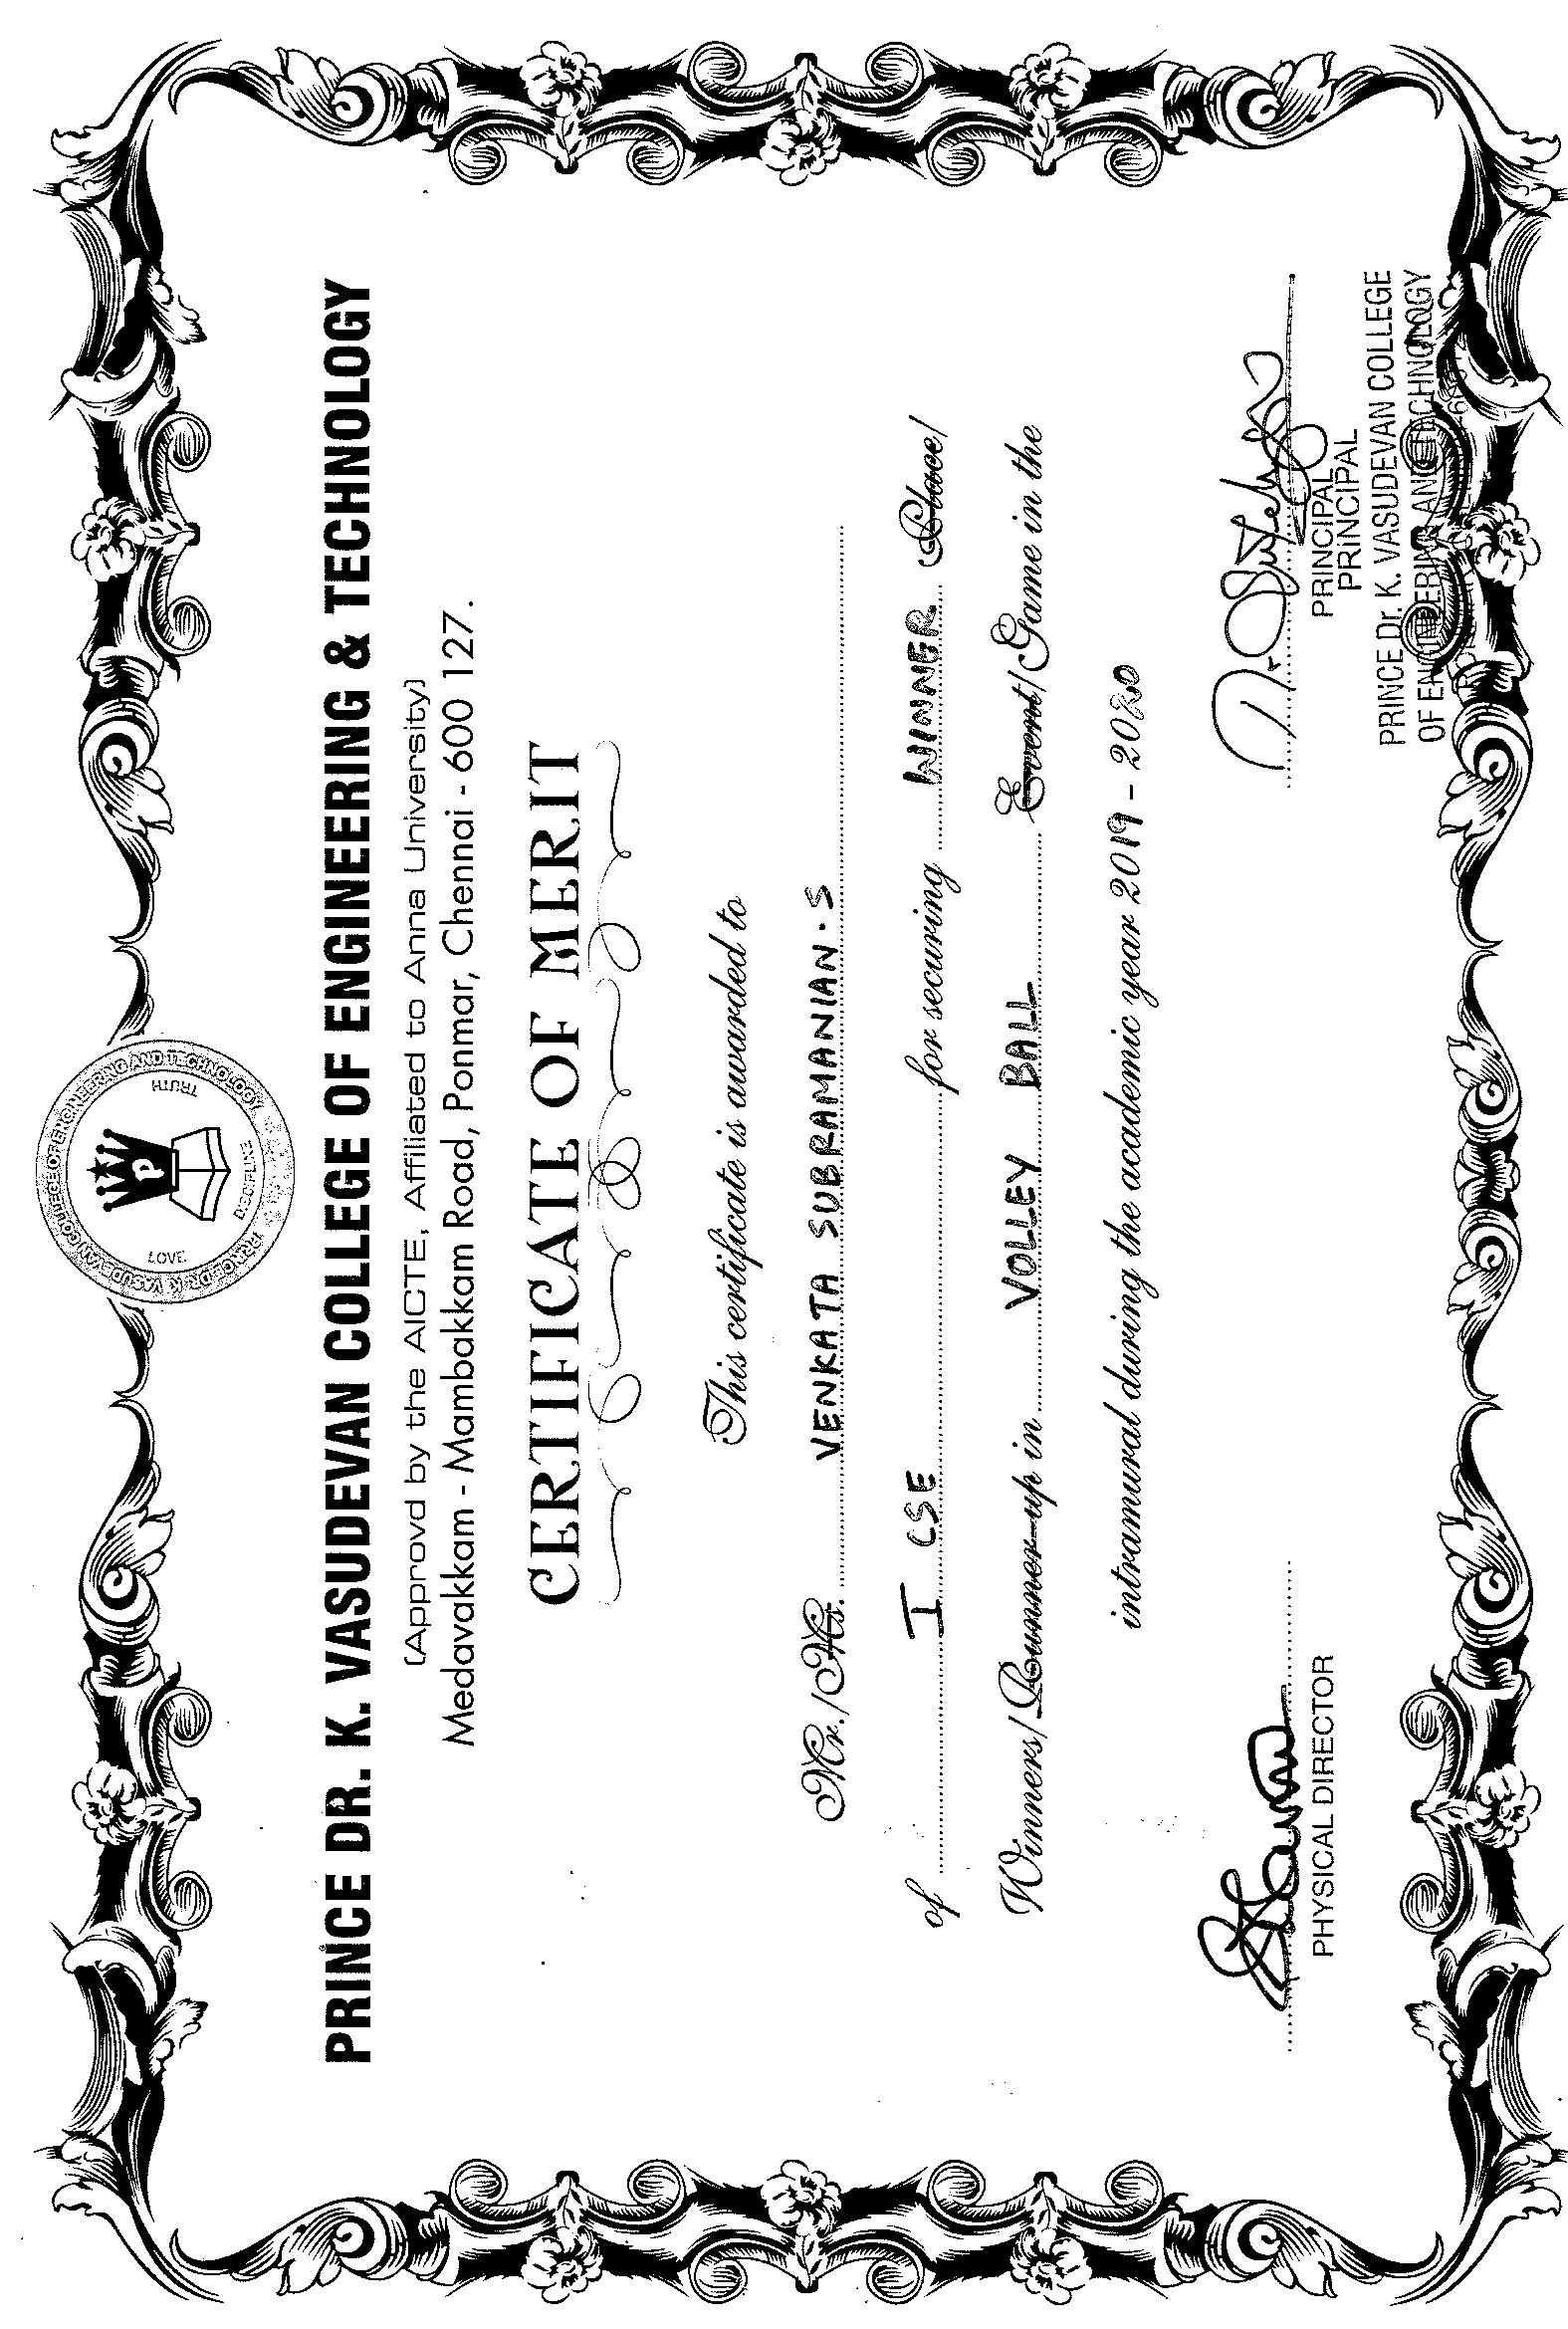 PRINCE DR. K. VASUDEVAN COLLEGE OF ENGINEERING AND TECHNOLOGY
LOVE
TRUTH
P
DISCIPLINE
PRINCE DR. K. VASUDEVAN COLLEGE OF ENGINEERING & TECHNOLOGY
(Approvd by the AICTE, Affiliated to Anna University)
Medavakkam - Mambakkam Road, Ponmar, Chennai - 600 127.
CERTIFICATE OF MERIT
This certificate is awarded to
Mr./Ms. VENKATA SUBRAMANIAN.S
of I CSE for securing WINNER Place/
Winners/Runner-up in VOLLEY BALL Event/Game in the
intramural during the academic year 2019 - 2020
PHYSICAL DIRECTOR
PRINCIPAL
PRINCIPAL
PRINCE Dr. K. VASUDEVAN COLLEGE
OF ENGINEERING AND TECHNOLOGY